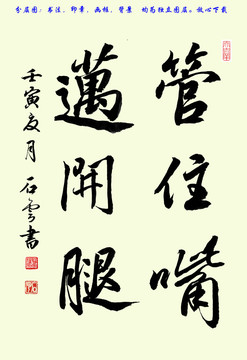 分层图：书法、印章、画框、背景　均为独立图层。放心下载
管住嘴
邁開腿
壬寅夏月
石雲書